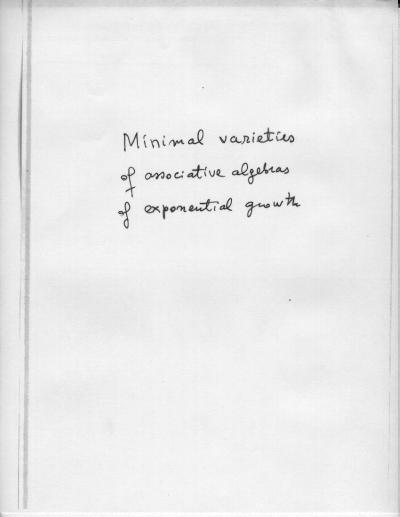 Minimal varieties
of associative algebras
of exponential growth